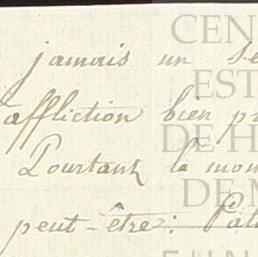 jamais un
affliction bien
Pourtant le
peut-être:
CEN
EST
DE H
DE M